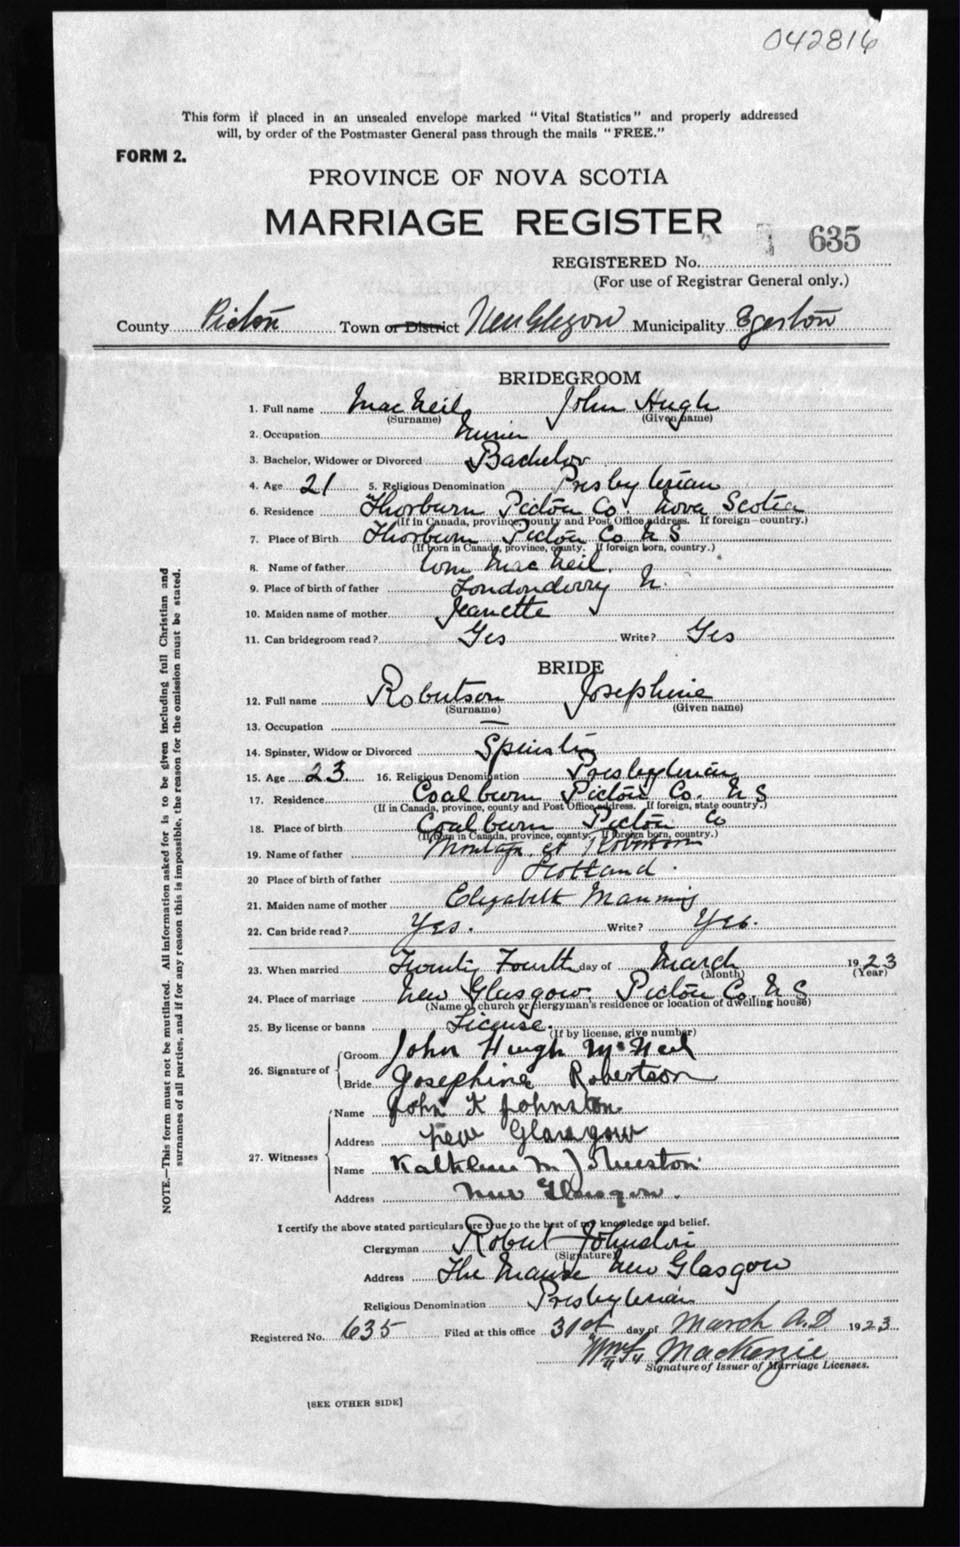 042816
This form if placed in an unsealed envelope marked "Vital Statistics" and properly addressed
will, by order of the Postmaster General pass through the mails "FREE."
FORM 2.
PROVINCE OF NOVA SCOTIA
MARRIAGE REGISTER
635
REGISTERED No.
(For use of Registrar General only.)
County Pictou Town or District New Glasgow Municipality Egerton
BRIDEGROOM
1. Full name MacNeil John Hugh
(Surname) (Given name)
2. Occupation Miner
3. Bachelor, Widower or Divorced Bachelor
4. Age 21 5. Religious Denomination Presbyterian
6. Residence Thorburn Pictou Co. Nova Scotia
(If in Canada, province, county and Post Office address. If foreign—country.)
7. Place of Birth Thorburn Pictou Co N S
(If born in Canada, province, county. If foreign born, country.)
8. Name of father Wm MacNeil.
9. Place of birth of father Londonderry N.
10. Maiden name of mother Jeanette
11. Can bridegroom read? Yes Write? Yes
BRIDE
12. Full name Robertson Josephine
(Surname) (Given name)
13. Occupation —
14. Spinster, Widow or Divorced Spinster
15. Age 23 16. Religious Denomination Presbyterian
17. Residence Coalburn Pictou Co. N S
(If in Canada, province, county and Post Office address. If foreign, state country.)
18. Place of birth Coalburn Pictou Co
(If born in Canada, province, county. If foreign born, country.)
19. Name of father Robertson
20 Place of birth of father Scotland.
21. Maiden name of mother Elizabeth Manning
22. Can bride read? Yes. Write? Yes.
23. When married Twenty Fourth day of March 1923
(Month) (Year)
24. Place of marriage New Glasgow, Pictou Co. N S
(Name of church or clergyman's residence or location of dwelling house)
25. By license or banns License.
(If by license, give number)
26. Signature of Groom John Hugh McNeil
Bride Josephine Robertson
27. Witnesses Name John K Johnston
Address New Glasgow
Name Kathleen M Johnston
Address New Glasgow.
I certify the above stated particulars are true to the best of my knowledge and belief.
Clergyman Robert Johnston
(Signature)
Address The Manse New Glasgow
Religious Denomination Presbyterian
Registered No. 635 Filed at this office 31st day of March A.D 1923
MacKenzie
Signature of Issuer of Marriage Licenses.
[SEE OTHER SIDE]
NOTE.—This form must not be mutilated. All information asked for is to be given including full Christian and
surnames of all parties, and if for any reason this is impossible, the reason for the omission must be stated.